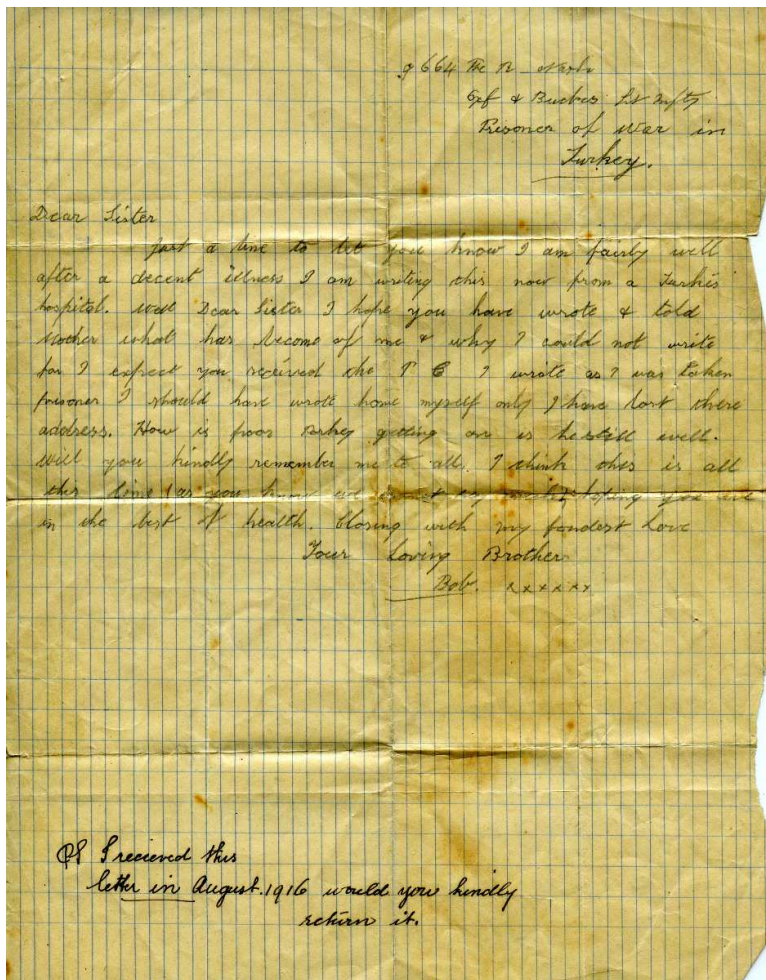 9664 Pte R Nash
Oxf & Bucks Lt Infty
Prisoner of War in
Turkey.
Dear Sister
Just a line to let you know I am fairly well
after a decent illness I am writing this now from a Turkis
hospital. Well Dear Sister I hope you have wrote & told
Mother what has become of me & why I could not write
for I expect you received the P C I wrote as I was taken
prisoner I should have wrote home myself only I have lost there
address. How is poor getting on is he still well.
Will you kindly remember me to all. I think this is all
this time (as you know we hoping you are
in the best of health. Closing with my fondest Love
Your Loving Brother
Bob. xxxxxx
PS I recieved this
letter in August. 1916 would you kindly
return it.